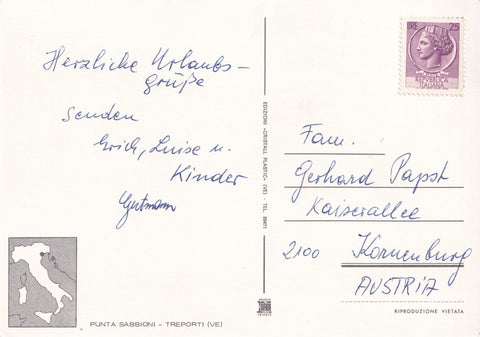 Herzliche Urlaubs-
grüße
senden
Erich, Luise u.
Kinder
Gutmann
LIRE 25
REPUBBLICA
ITALIANA
EDIZIONI «CRISTALL PLASTIC» (VE) - TEL.
Fam.
Gerhard Papst
Kaiserallee
2100 Korneuburg
AUSTRIA
RIPRODUZIONE VIETATA
PUNTA SABBIONI - TREPORTI (VE)